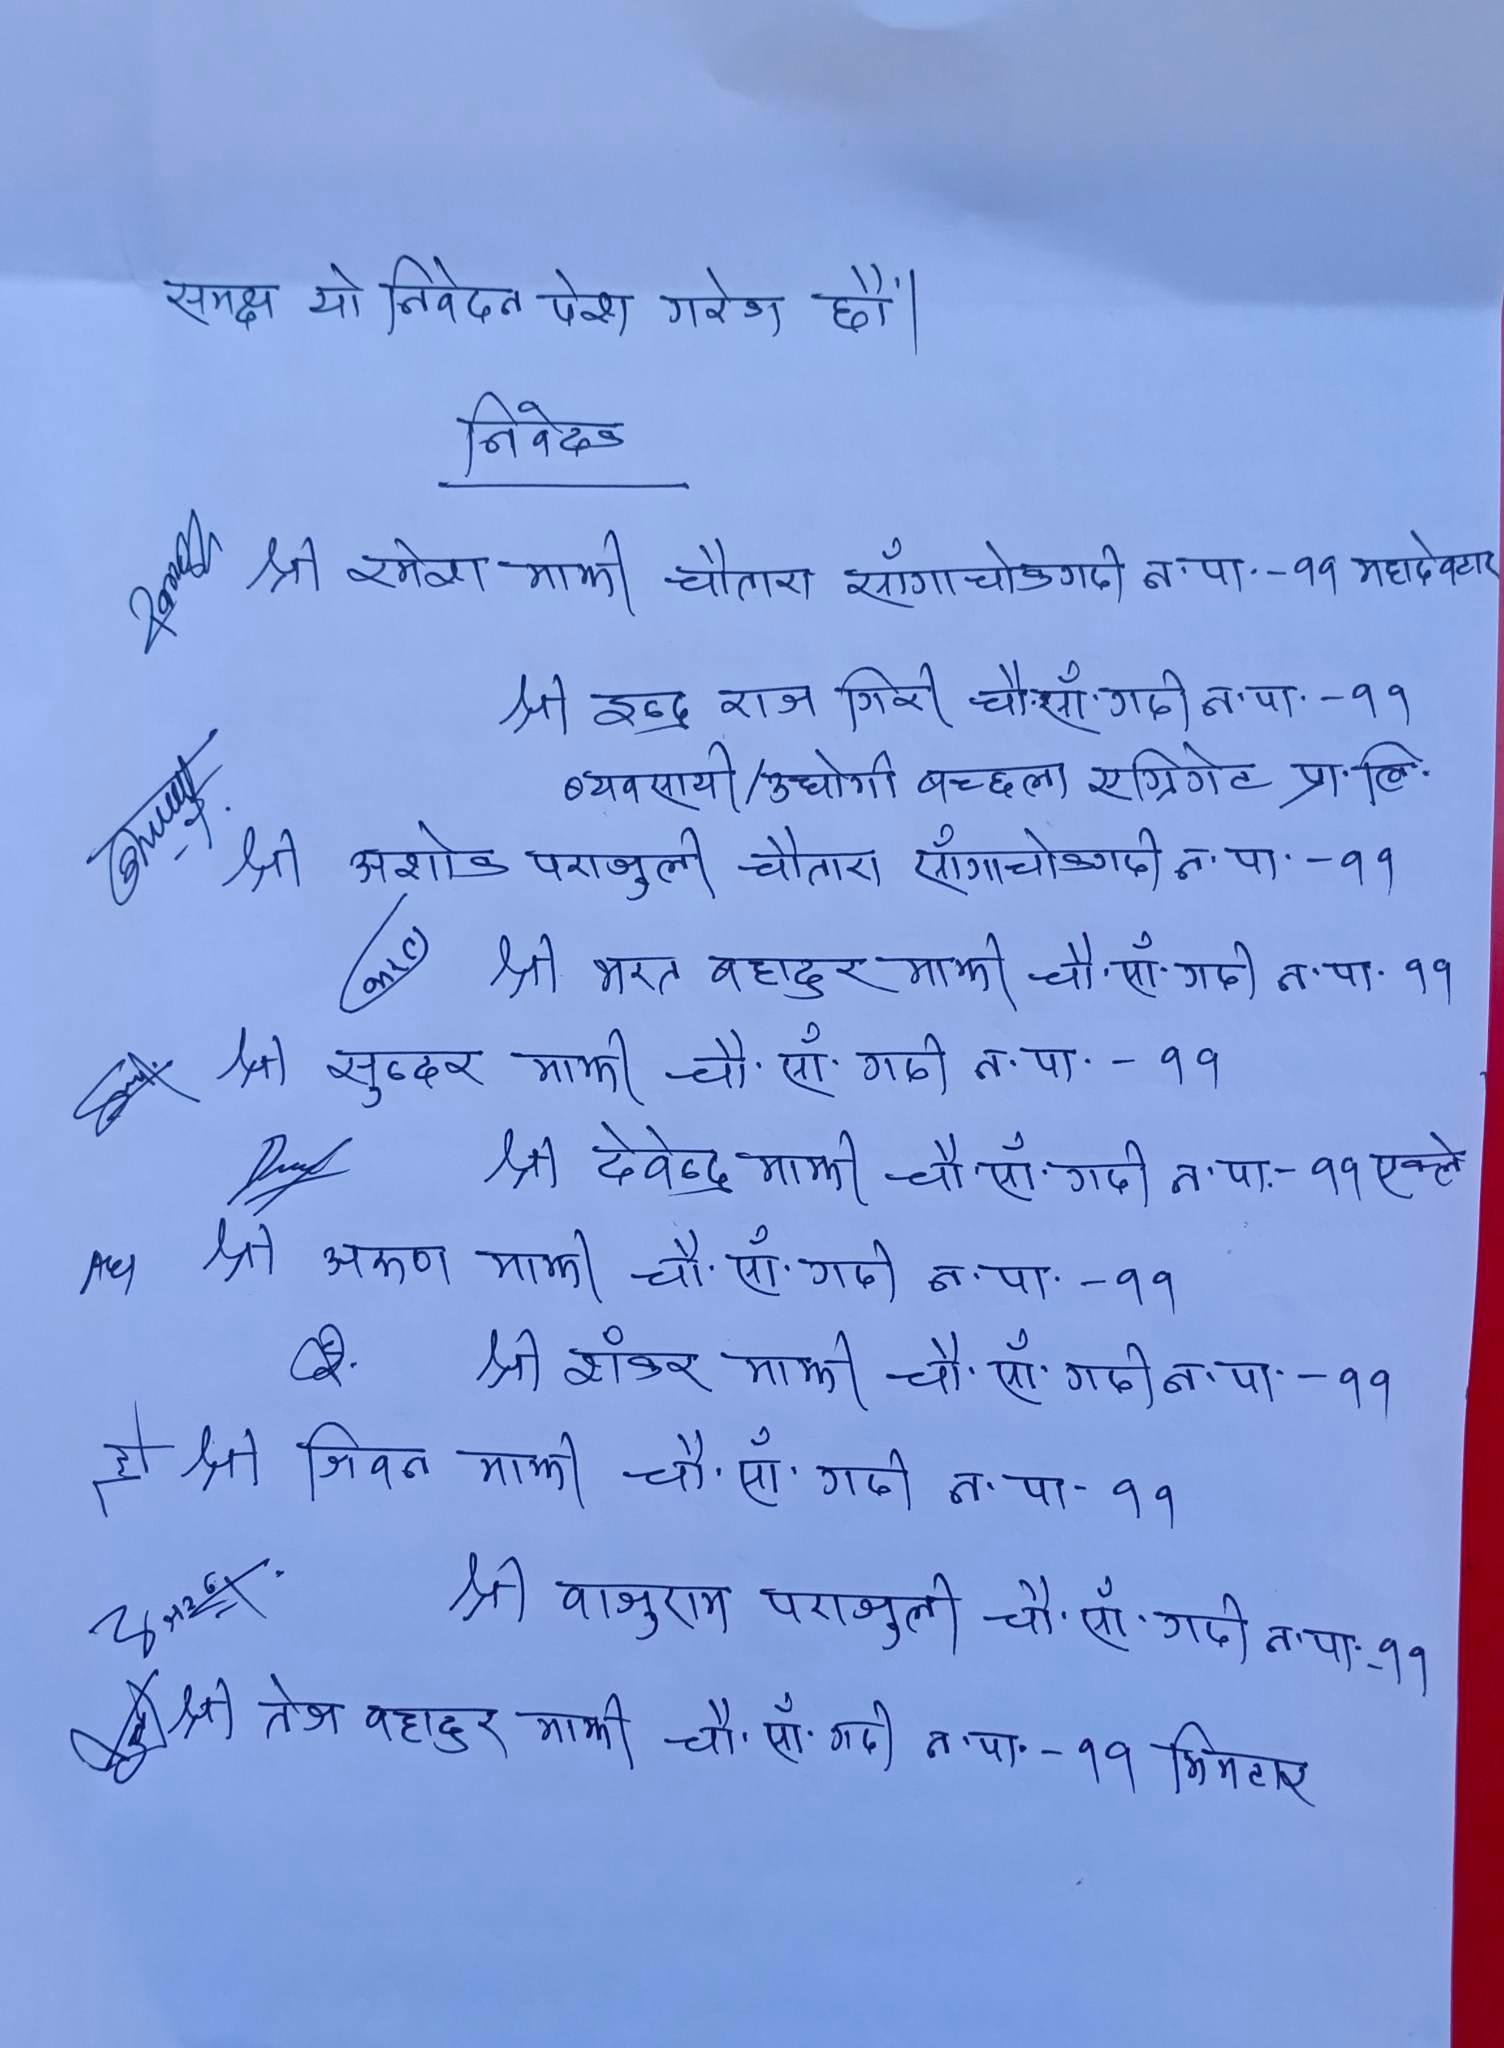 समक्ष यो निवेदन पेश गरेका छौं।
निवेदक
श्री रमेश माझी चौतारा साँगाचोकगढी न.पा.-११ महादेवटार
श्री इन्द्र राज गिरी चौ.साँ.गढी न.पा.-११
व्यवसायी/उद्योगी बच्छला एग्रिगेट प्रा.लि.
श्री अशोक पराजुली चौतारा साँगाचोकगढी न.पा.-११
श्री भरत बहादुर माझी चौ.साँ.गढी न.पा. ११
श्री सुन्दर माझी चौ.साँ.गढी न.पा.-११
श्री देवेन्द्र माझी चौ.साँ.गढी न.पा.-११ एक्ले
श्री अरूण माझी चौ.साँ.गढी न.पा.-११
श्री शंकर माझी चौ.साँ.गढी न.पा.-११
श्री जिवन माझी चौ.साँ.गढी न.पा-११
श्री वाजुराम पराजुली चौ.साँ.गढी न.पा.-११
श्री तेज वहादुर माझी चौ.साँ.गढी न.पा.-११ भिमटार